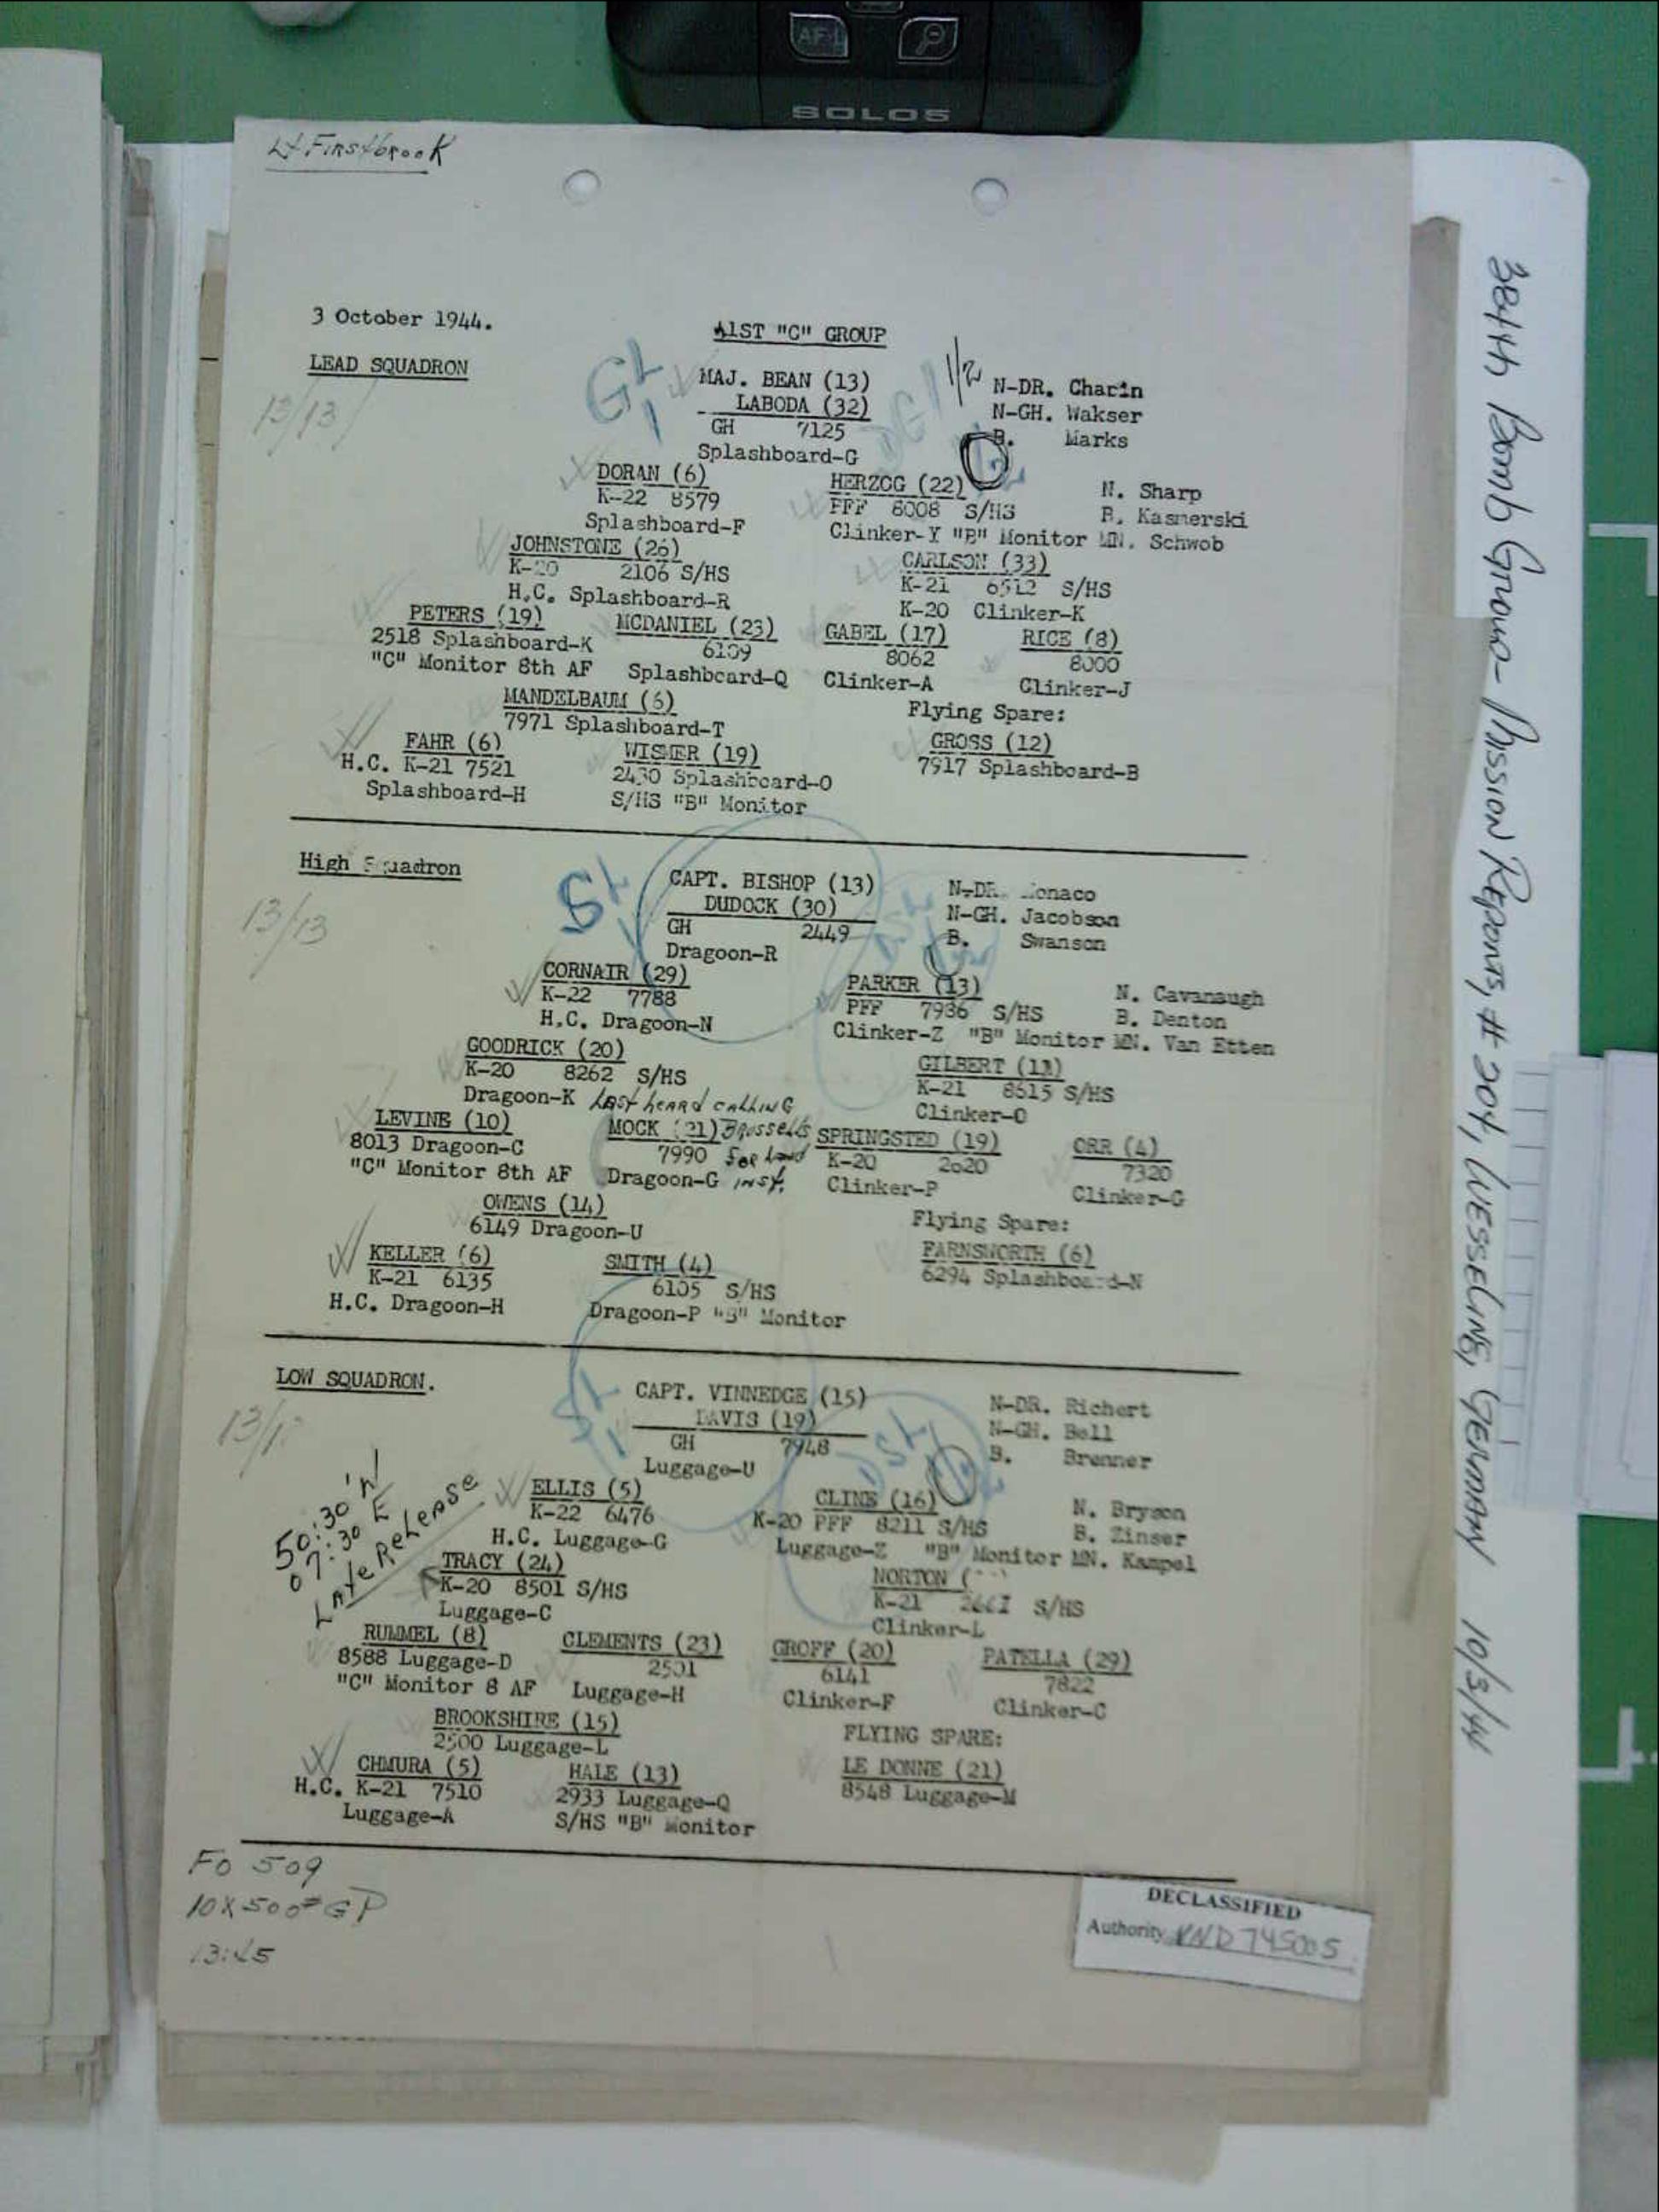 AF-L
SOLOS
Lt Firstbrook
3 October 1944.
41ST "C" GROUP
LEAD SQUADRON
13/13
GL
1
1/2
MAJ. BEAN (13)
LABODA (32)
GH 7125
Splashboard-G
N-DR. Charin
N-GH. Wakser
B. Marks
DORAN (6)
K-22 8579
Splashboard-F
HERZOG (22)
PFF 8008 S/HS
Clinker-Y "B" Monitor MN. Schwob
N. Sharp
B. Kasmerski
JOHNSTONE (26)
K-20 2106 S/HS
H.C. Splashboard-R
CARLSON (33)
K-21 6512 S/HS
K-20 Clinker-K
PETERS (19)
2518 Splashboard-K
"C" Monitor 8th AF
MCDANIEL (23)
Splashboard-Q
GABEL (17)
8062
Clinker-A
RICE (8)
8000
Clinker-J
MANDELBAUM (6)
7971 Splashboard-T
Flying Spare:
GROSS (12)
7917 Splashboard-B
FAHR (6)
H.C. K-21 7521
Splashboard-H
WISMER (19)
2430 Splashboard-O
S/HS "B" Monitor
High Squadron
13/13
CAPT. BISHOP (13)
DUDOCK (30)
GH 2449
Dragoon-R
N-DR. Monaco
N-GH. Jacobson
B. Swanson
CORNAIR (29)
K-22 7788
H.C. Dragoon-N
PARKER (13)
PFF 7936 S/HS
Clinker-Z "B" Monitor MN. Van Etten
N. Cavanaugh
B. Denton
GOODRICK (20)
K-20 8262 S/HS
Dragoon-K
GILBERT (13)
K-21 8615 S/HS
Clinker-O
Last heard calling
Brussells
for land
inst.
LEVINE (10)
8013 Dragoon-C
"C" Monitor 8th AF
MOCK (21)
7990
Dragoon-G
SPRINGSTED (19)
K-20 2020
Clinker-P
ORR (4)
7320
Clinker-G
OWENS (14)
6149 Dragoon-U
Flying Spare:
FARNSWORTH (6)
6294 Splashboard-N
KELLER (6)
K-21 6135
H.C. Dragoon-H
SMITH (4)
6105 S/HS
Dragoon-P "B" Monitor
LOW SQUADRON.
CAPT. VINNEDGE (15)
DAVIS (19)
GH 7948
Luggage-U
N-DR. Richert
N-GH. Bell
B. Brenner
50:30'N
07:30 E
Late Release
ELLIS (5)
K-22 6476
H.C. Luggage-G
CLINE (16)
K-20 PFF 8211 S/HS
Luggage-Z "B" Monitor MN. Kampel
N. Bryson
B. Zinser
TRACY (24)
K-20 8501 S/HS
Luggage-C
NORTON
K-21 S/HS
Clinker-L
RUMMEL (8)
8588 Luggage-D
"C" Monitor 8 AF
CLEMENTS (23)
2501
Luggage-H
GROFF (20)
6141
Clinker-F
PATELLA (29)
7822
Clinker-C
BROOKSHIRE (15)
2500 Luggage-L
FLYING SPARE:
LE DONNE (21)
8548 Luggage-M
CHMURA (5)
H.C. K-21 7510
Luggage-A
HALE (13)
2933 Luggage-Q
S/HS "B" Monitor
FO 509
10X500# GP
13:45
DECLASSIFIED
Authority NND 745005
384th Bomb Group- Mission Reports, # 204, WESSELING, GERMAN 10/3/44